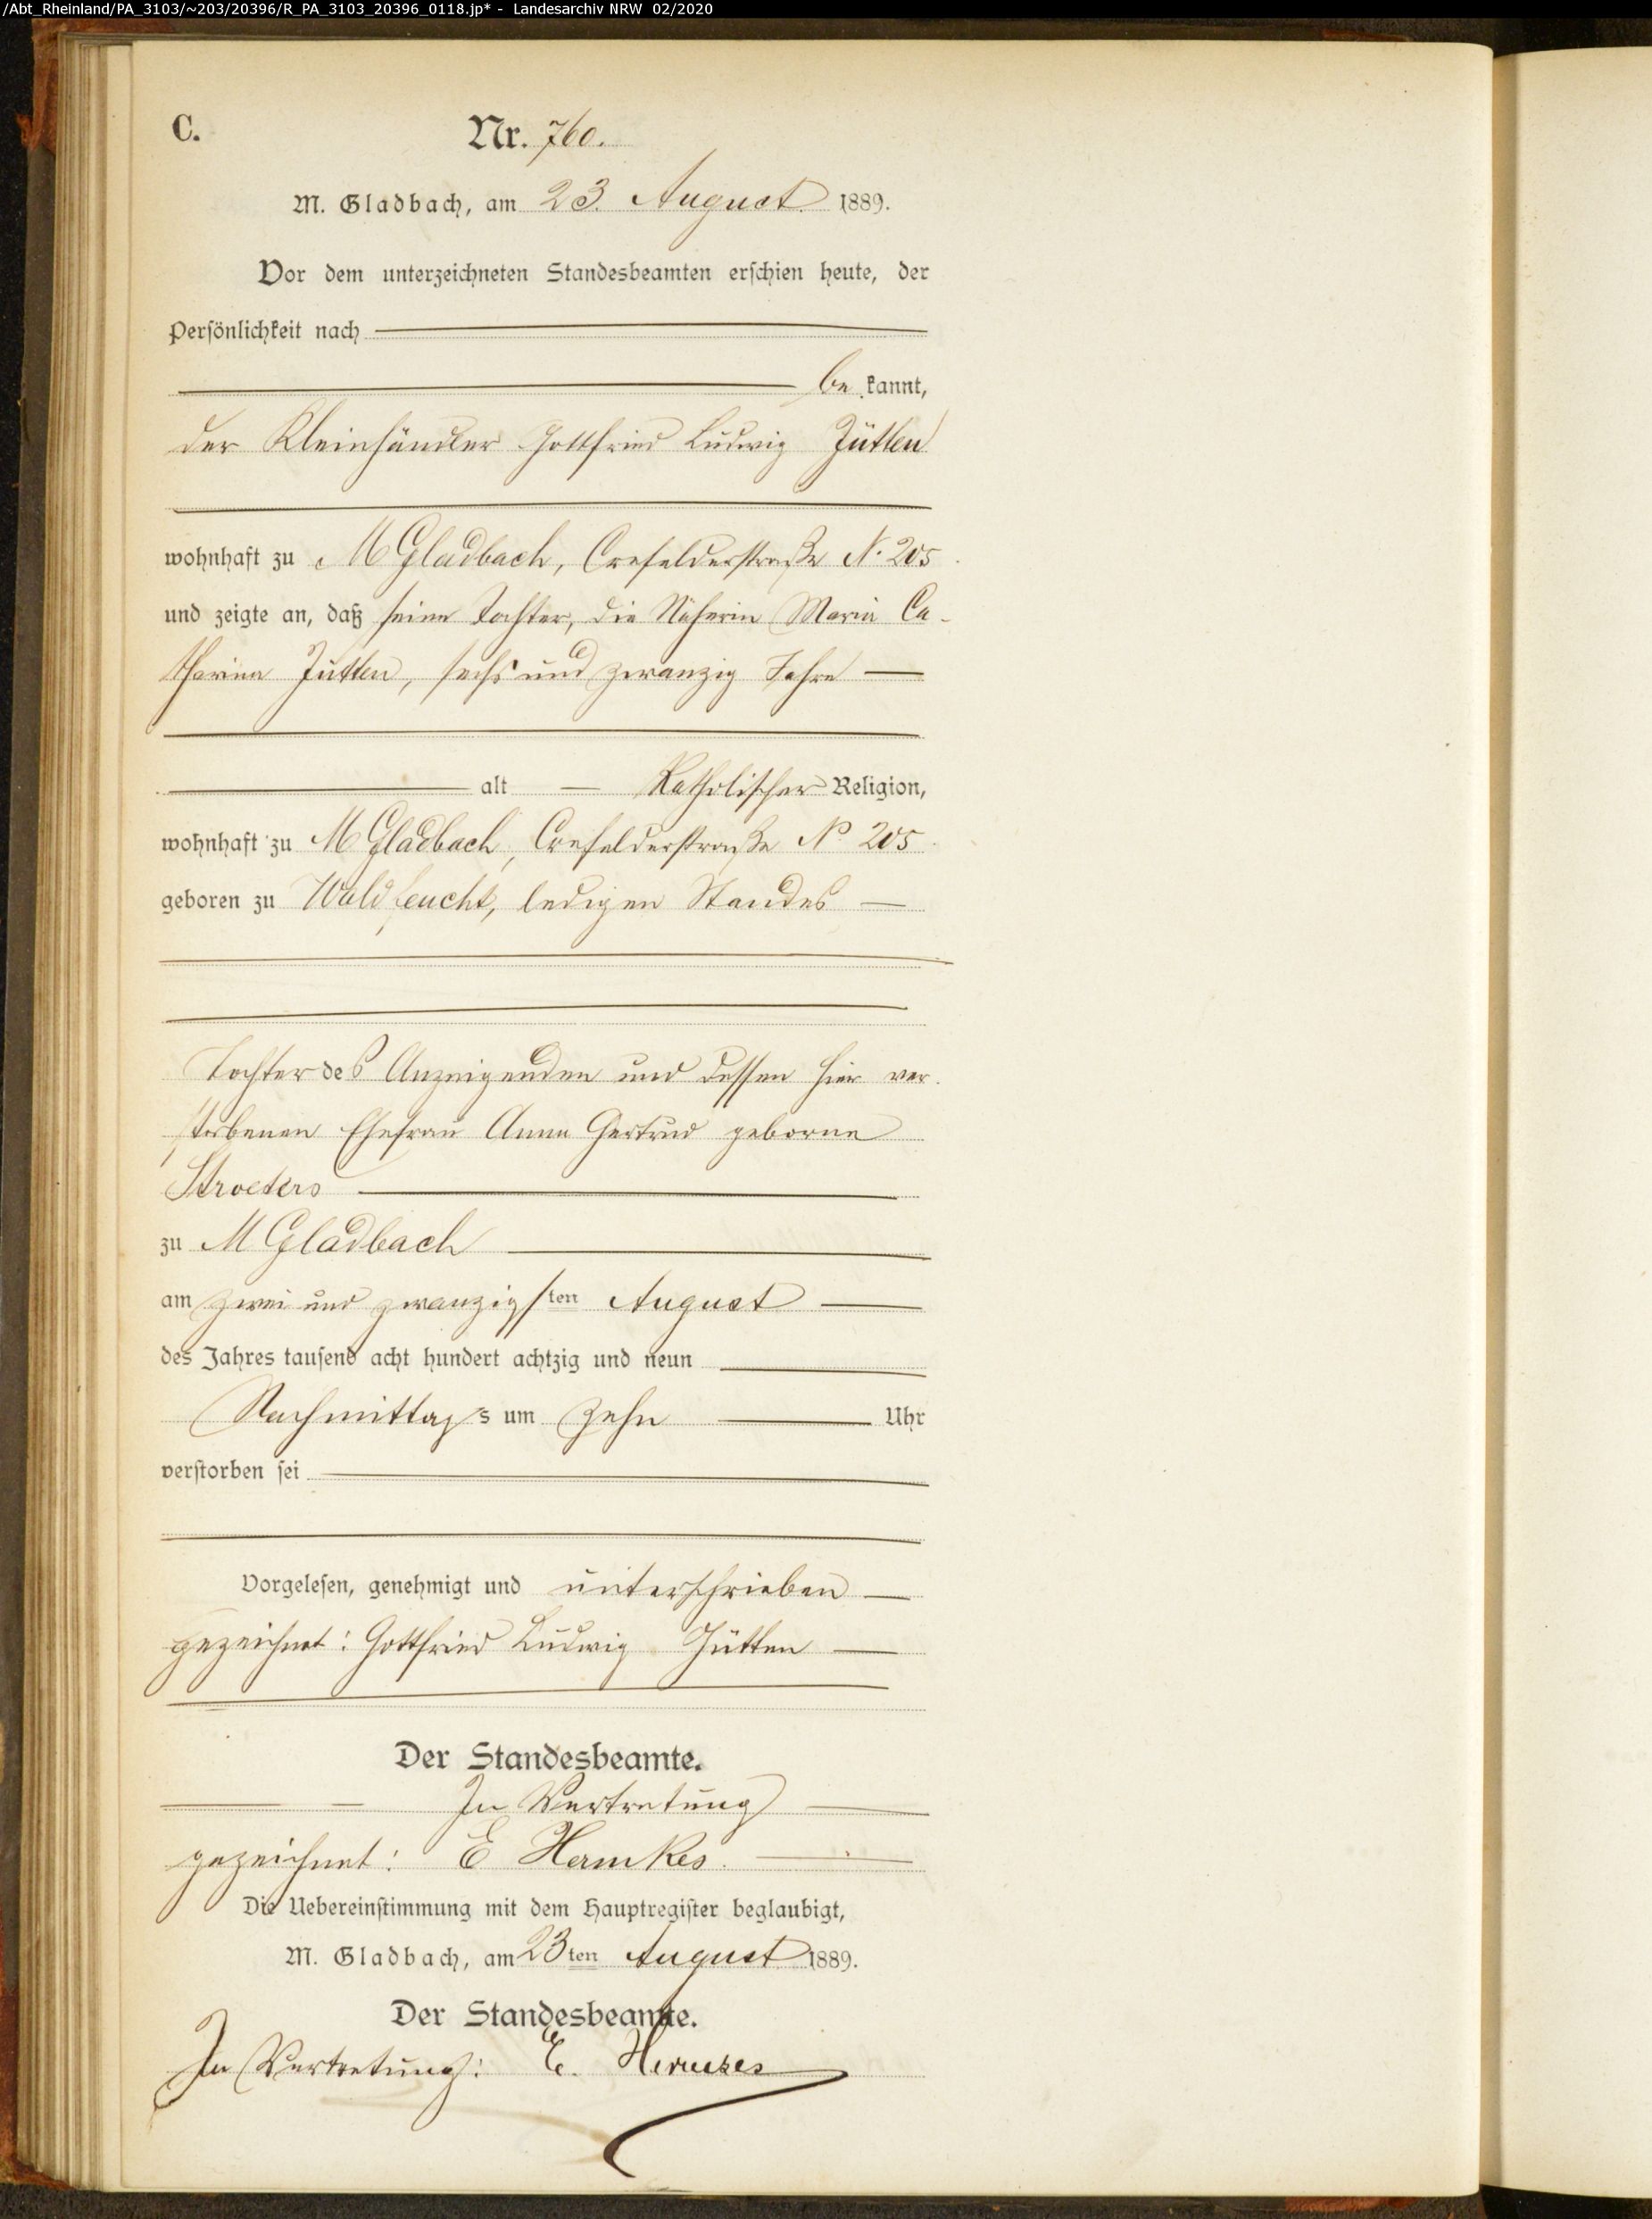 /Abt_Rheinland/PA_3103/~203/20396/R_PA_3103_20396_0118.jp* - Landesarchiv NRW 02/2020
C.
Nr. 760.
M. Gladbach, am 23. August 1889.
Vor dem unterzeichneten Standesbeamten erschien heute, der
Persönlichkeit nach
be kannt,
der Kleinhändler Gottfried Ludwig Jütten
wohnhaft zu M Gladbach, Crefelderstraße N. 205
und zeigte an, daß seine Tochter, die Näherin Maria Ca-
tharina Jütten, sechs und zwanzig Jahre
alt Katholischer Religion,
wohnhaft zu M Gladbach, Crefelderstraße No 205
geboren zu Waldfeucht, ledigen Standes
Tochter des Anzeigenden und dessen hier ver-
storbenen Ehefrau Anna Gertrud geborne
Stroeters
zu M Gladbach
am zwei und zwanzigsten August
des Jahres tausend acht hundert achtzig und neun
Nachmittags um zehn Uhr
verstorben sei
Vorgelesen, genehmigt und unterschrieben
gezeichnet: Gottfried Ludwig Jütten
Der Standesbeamte.
In Vertretung
gezeichnet: E Hermkes.
Die Uebereinstimmung mit dem Hauptregister beglaubigt,
M. Gladbach, am 23ten August 1889.
Der Standesbeamte.
In Vertretung: E. Hermkes